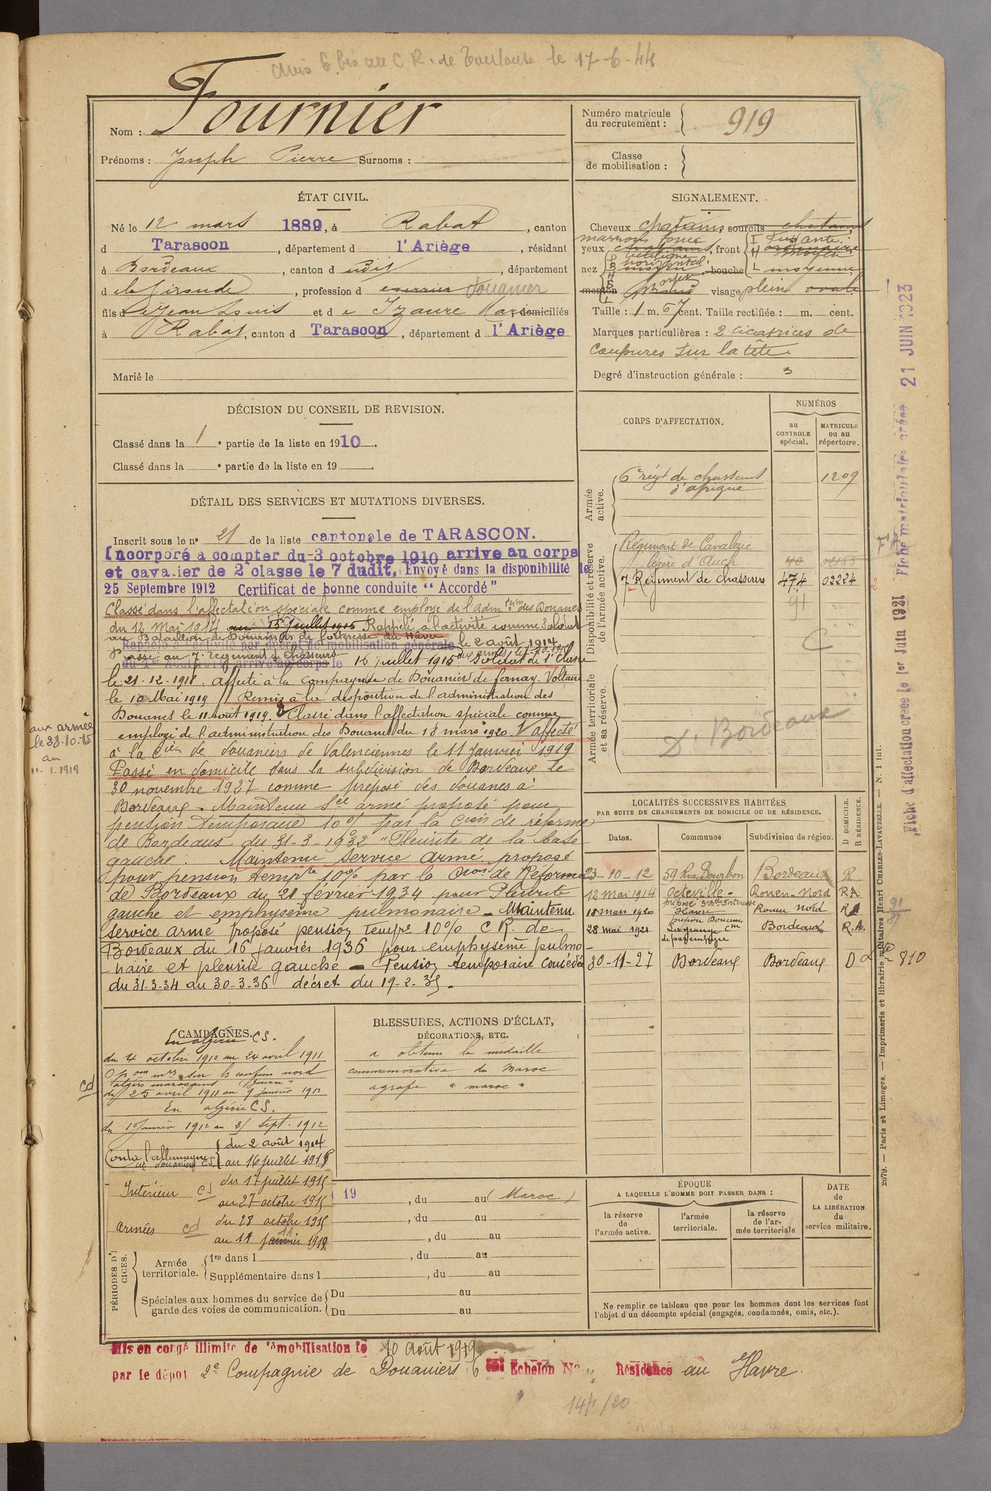 Avis 6 bis au C.R. de Toulouse le 17-6-44
Nom : Fournier
Prénoms : Joseph Pierre Surnoms :
Numéro matricule du recrutement : 919
Classe de mobilisation :
ÉTAT CIVIL.
Né le 12 mars 1889, à Rabat, canton
d Tarascon, département d l'Ariège, résidant
à Bordeaux, canton d udit, département
d e la Gironde, profession d
fils d e Jean Louis et d e Izaure domiciliés
à Rabat, canton d Tarascon, département d l'Ariège
Marié le
SIGNALEMENT.
Cheveux chatains sourcils
yeux front
nez bouche moyenne,
menton visage plein ovale
Taille : 1 m. 67 cent. Taille rectifiée : m. cent.
Marques particulières : 2 cicatrices de
coupures sur la tête.
Degré d'instruction générale : 3
DÉCISION DU CONSEIL DE REVISION.
Classé dans la 1e partie de la liste en 1910.
Classé dans la e partie de la liste en 19 .
DÉTAIL DES SERVICES ET MUTATIONS DIVERSES.
Inscrit sous le n° 21 de la liste cantonale de TARASCON.
Incorporé à compter du 3 octobre 1910 arrive au corps
et cavalier de 2 classe le 7 dudit, Envoyé dans la disponibilité le
25 Septembre 1912 Certificat de bonne conduite "Accordé"
Classé dans l'affectation spéciale comme employé de l'admtion des Douanes
du 12 Mai 1914 au 15 juillet 1915 Rappelé à l'activité comme soldat
au Bataillon de Douaniers de forteresse du Havre le 2 août 1914
Passé au 7e régiment de chasseurs
16 juillet 1915 Soldat de 1e Classe
le 21-12-1918. Affecté à la Compagnie de Douaniers de Fernay-Voltaire
le 10 Mai 1919 Remis à la disposition de l'administration des
Douanes le 11 août 1919. Classé dans l'affectation spéciale comme
employé de l'administration des Douanes du 18 mars 1920. Affecté
à la Cie de douaniers de Valenciennes le 11 Janvier 1919
Passé en domicile dans la subdivision de Bordeaux le
30 novembre 1927 comme préposé des douanes à
Bordeaux - Maintenu sce armé proposé pour
pension temporaire 10% par la Cion de réforme
de Bordeaux du 31-3-1932 "Pleurite de la base
gauche. Maintenu service armé, proposé
pour pension tempre 10% par la Cion de Réforme
de Bordeaux du 21 février 1934 pour Pleurite
gauche et emphysème pulmonaire - Maintenu
service armé proposé pension tempre 10% C.R. de
Bordeaux du 16 janvier 1936 pour emphysème pulmo-
naire et pleurite gauche - Pension temporaire concédée
du 31.3.34 au 30-3-36 décret du 19-2-35.
aux armées
le 28-10-15
au
11-1-1919
CORPS D'AFFECTATION.
NUMÉROS
au CONTROLE spécial.
MATRICULE ou au répertoire.
Armée active.
6e régt de chasseurs d'Afrique 1209
Disponibilité et réserve de l'armée active.
Régiment de Cavalerie
légère d'Auch
7 Régiment de chasseurs 474 02224
91
C
Armée territoriale et sa réserve.
D. Bordeaux
LOCALITÉS SUCCESSIVES HABITÉES
PAR SUITE DE CHANGEMENTS DE DOMICILE OU DE RÉSIDENCE.
Dates. Communes Subdivision de région. D DOMICILE. R RÉSIDENCE.
23-10-12 59 Rue Bourbon Bordeaux R
12 mai 1914 Octeville - Rouen-Nord RA
18 mars 1920 Havre Rouen Nord RA
28 mai 1921 Bordeaux R.A.
30-11-27 Bordeaux Bordeaux D 810
CAMPAGNES.
En Algérie CS.
du 4 octobre 1910 au 24 avril 1911
du 25 avril 1911 au 9 janvier 1912
En Algérie CS.
Contre l'Allemagne du 2 août 1914
au 16 juillet 1915
Intérieur cs du 17 juillet 1915
au 27 octobre 1915
Armées cd du 28 octobre 1915
au 11 janvier 1919
cd
BLESSURES, ACTIONS D'ÉCLAT,
DÉCORATIONS, ETC.
a obtenu la médaille
commémorative du Maroc
agrafe " Maroc "
19 , du au (Maroc)
, du au
, du au
PÉRIODES D'EXERCICES.
Armée territoriale. 1re dans l , du au
Supplémentaire dans l , du au
Spéciales aux hommes du service de garde des voies de communication. Du au
Du au
ÉPOQUE
A LAQUELLE L'HOMME DOIT PASSER DANS :
la réserve de l'armée active.
l'armée territoriale.
la réserve de l'armée territoriale
DATE de LA LIBÉRATION du service militaire.
Ne remplir ce tableau que pour les hommes dont les services font
l'objet d'un décompte spécial (engagés, condamnés, omis, etc.).
Mis en congé illimité de démobilisation le 10 Août 1919
par le dépôt 2e Compagnie de Douaniers 6 Echelon No Résidence au Havre.
Fiche d'affectation créée le 1er Juin 1921 Fiche matriculaire créée 21 JUIN 1923
2079. — Paris et Limoges. — Imprimerie et librairie militaires Henri CHARLES-LAVAUZELLE. — N. 1 int.